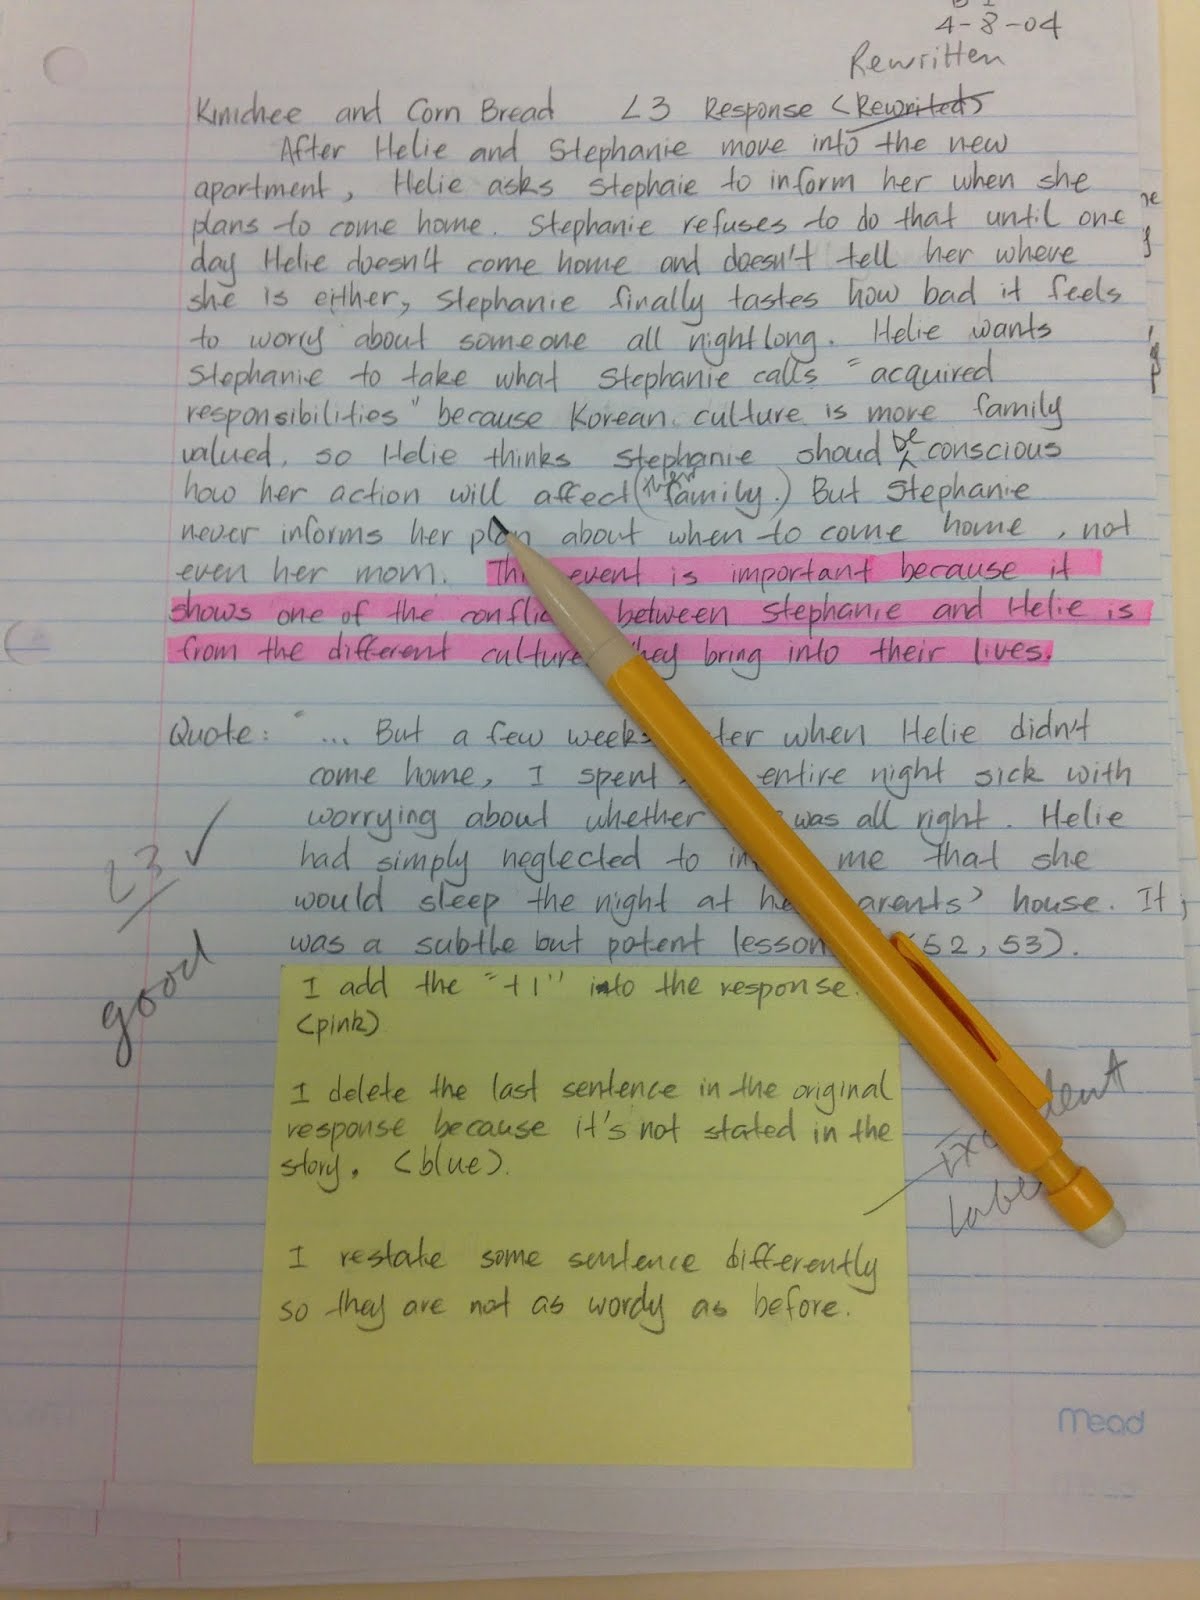 4-8-04
Rewritten
Kimchee and Corn Bread L3 Response (Rewrited)
After Helie and Stephanie move into the new
apartment, Helie asks Stephaie to inform her when she
plans to come home. Stephanie refuses to do that until one
day Helie doesn't come home and doesn't tell her where
she is either, Stephanie finally tastes how bad it feels
to worry about someone all night long. Helie wants
Stephanie to take what Stephanie calls "acquired
responsibilities" because Korean culture is more family
valued, so Helie thinks Stephanie shoud be conscious
how her action will affect (her family.) But Stephanie
never informs her plan about when to come home, not
even her mom. This event is important because it
shows one of the between Stephanie and Helie is
from the different they bring into their lives.
Quote: "... But a few weeks when Helie didn't
come home, I spent entire night sick with
worrying about whether was all right. Helie
had simply neglected to me that she
would sleep the night at house. It
was a subtle but potent lesson (52, 53).
L3 ✓
good
I add the "+1" into the response.
(pink)
I delete the last sentence in the original
response because it's not stated in the
story. (blue).
I restate some sentence differently
so they are not as wordy as before.
mead